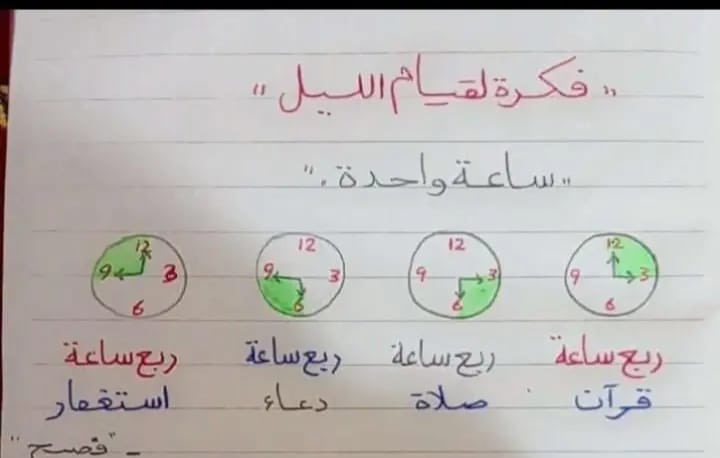 "فكرة لقيام الليل"
"ساعة واحدة."
12 3 6 9
12 3 6 9
12 3 6 9
12 3 6 9
ربع ساعة ربع ساعة ربع ساعة ربع ساعة
قرآن صلاة دعاء استغفار